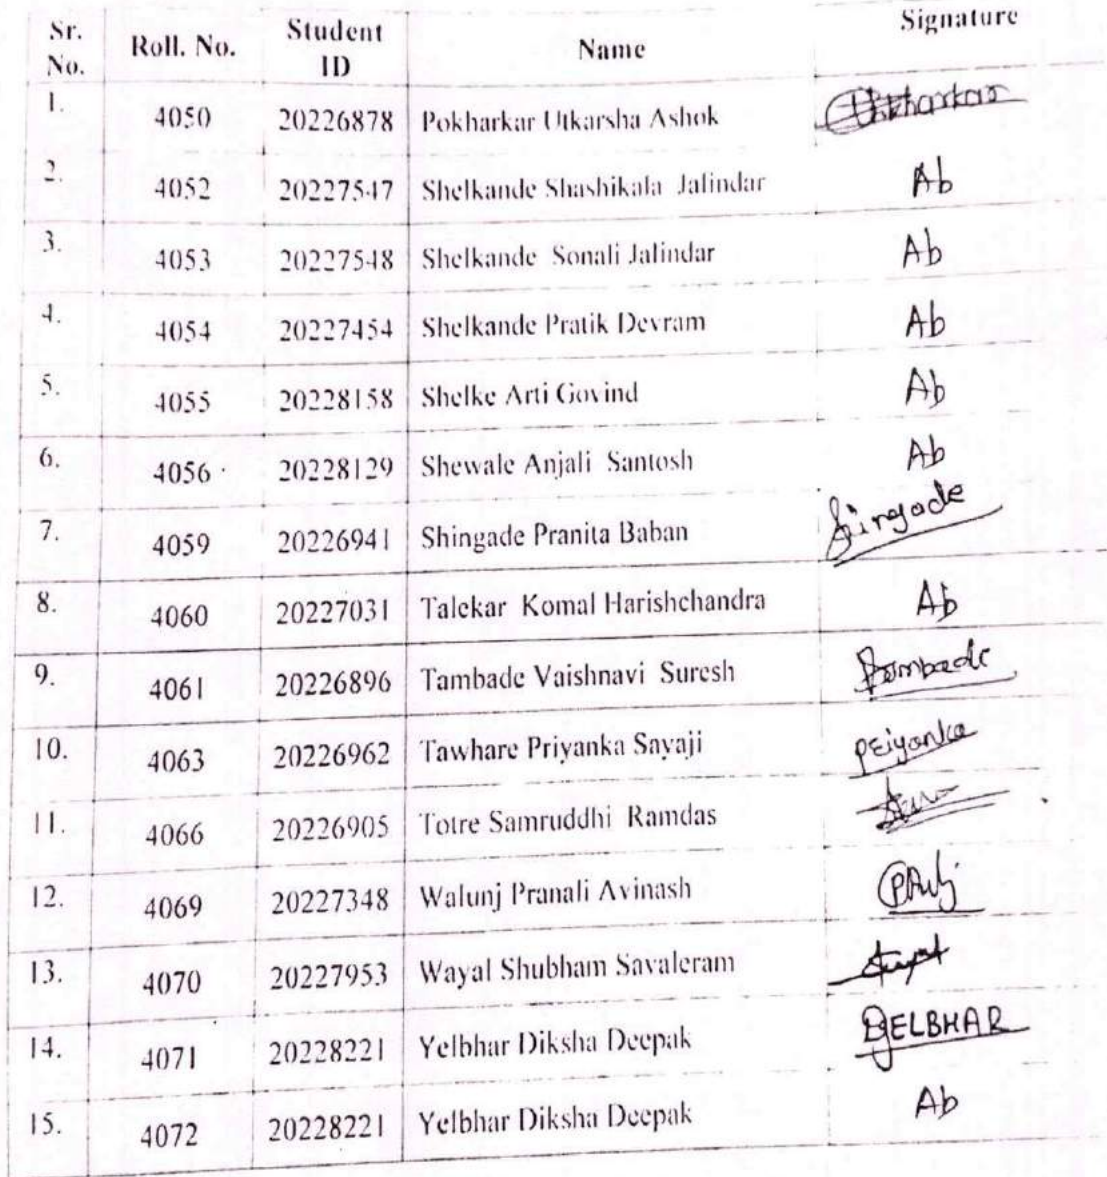 Sr. No. Roll. No. Student ID Name Signature
1. 4050 20226878 Pokharkar Utkarsha Ashok
2. 4052 20227547 Shelkande Shashikala Jalindar Ab
3. 4053 20227548 Shelkande Sonali Jalindar Ab
4. 4054 20227454 Shelkande Pratik Devram Ab
5. 4055 20228158 Shelke Arti Govind Ab
6. 4056 20228129 Shewale Anjali Santosh Ab
7. 4059 20226941 Shingade Pranita Baban
8. 4060 20227031 Talekar Komal Harishchandra Ab
9. 4061 20226896 Tambade Vaishnavi Suresh
10. 4063 20226962 Tawhare Priyanka Sayaji Priyanka
11. 4066 20226905 Totre Samruddhi Ramdas
12. 4069 20227348 Walunj Pranali Avinash
13. 4070 20227953 Wayal Shubham Savaleram
14. 4071 20228221 Yelbhar Diksha Deepak DYELBHAR
15. 4072 20228221 Yelbhar Diksha Deepak Ab